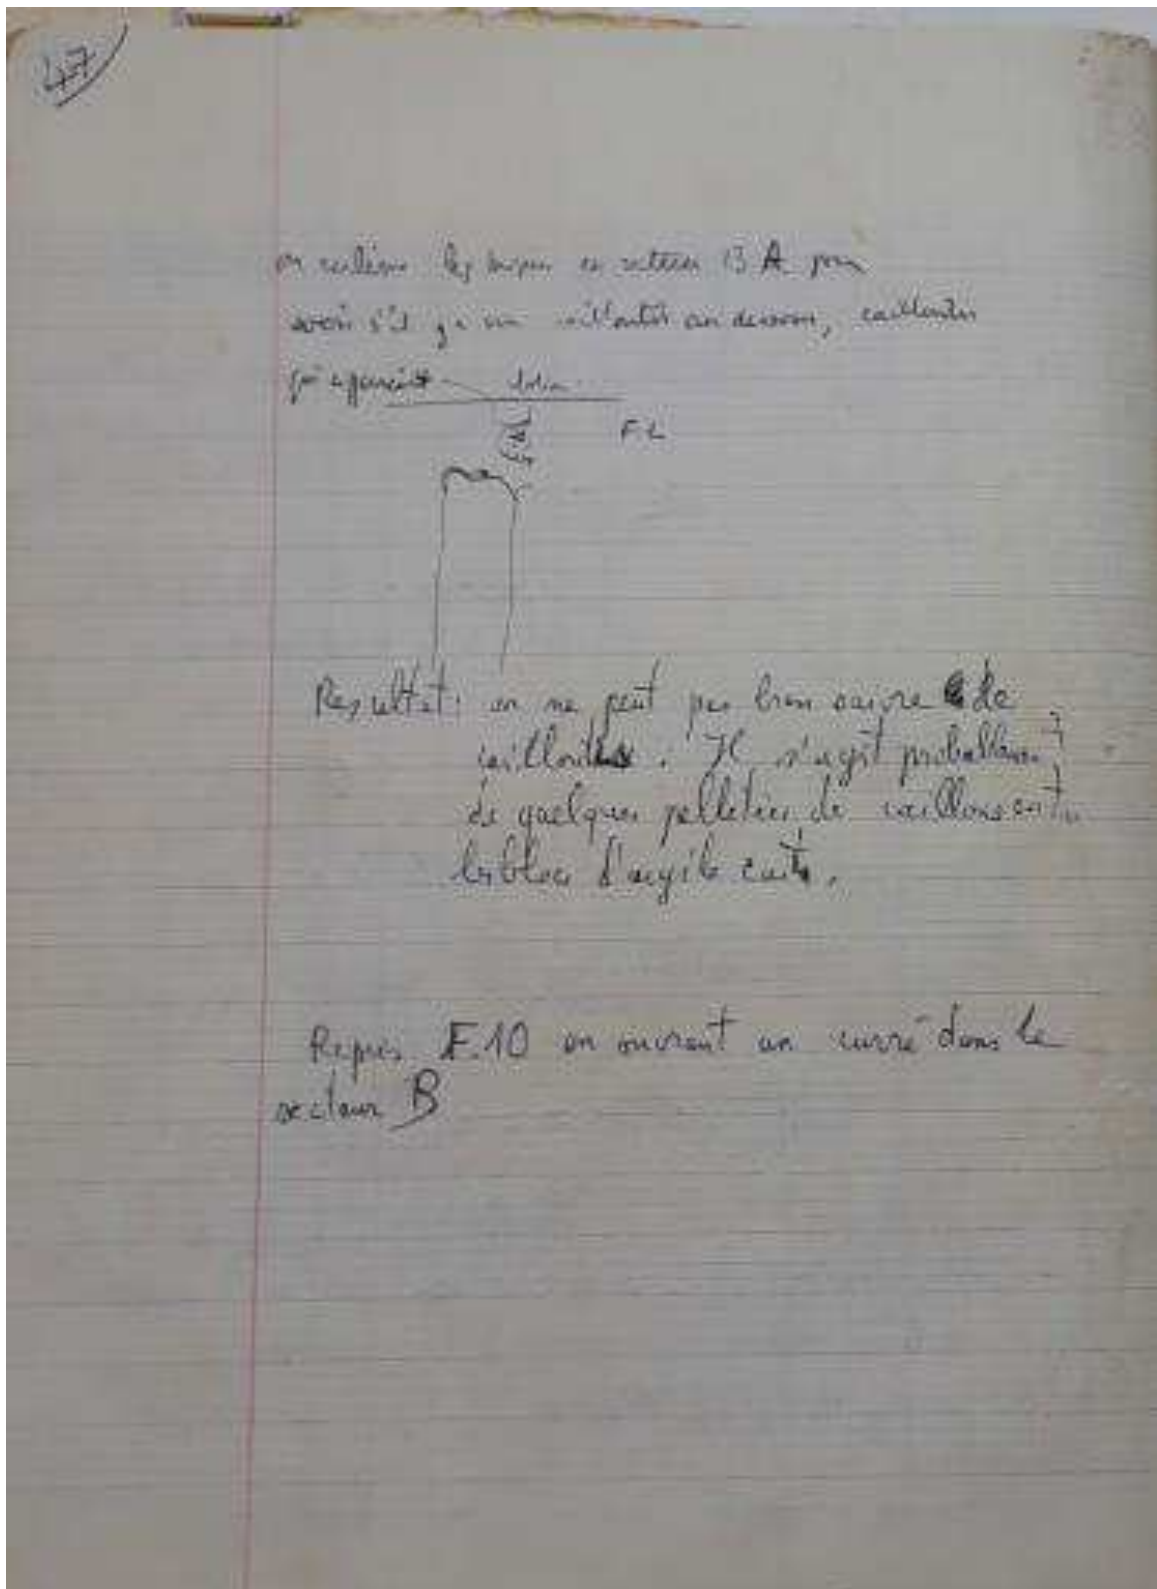 47
on enlève les briques en secteur 13 A pour
savoir s'il y a un cailloutis au dessous, cailloutis
qui apparaît
F.L
Resultat: on ne peut pas bien suivre de
cailloutis. Il s'agit probablem^t
de quelques pelletées de cailloux entre
les blocs d'argile cuite.
Repris F.10 en ouvrant un carré dans le
secteur B